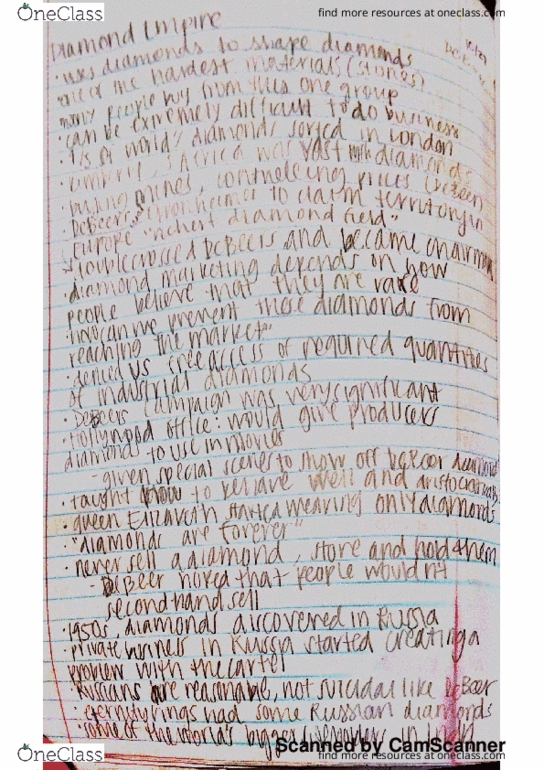 OneClass
find more resources at oneclass.com
Diamond Empire
• uses diamonds to shape diamonds
• one of the hardest materials (stones)
many people buy from this one group
• can be extremely difficult to do business
of world's diamonds sorted in London
S Africa was vast diamonds
buying mines, controlling prices
• DeBeers to claim territory in
Europe "richest diamond field"
doublecrossed DeBeers and became chairman
• diamond marketing depends on how
people believe that they are rare
• how can we prevent these diamonds from
reaching the market"
• denied US free access of required quantities
of industrial diamonds
• DeBeers campaign was very significant
• Hollywood office: would give producers
diamonds to use in movies
- given special scenes to show off DeBeer diamond
• taught how to behave well and
• queen Elizabeth started wearing only diamonds
• "diamonds are forever"
• never sell a diamond, store and hold them
- DeBeer hoped that people wouldn't
secondhand sell
1950s, diamonds discovered in Russia
• private business in Russia started creating a
problem with the cartel
• Russians are reasonable, not suicidal like DeBeer
• eternity rings had some Russian diamonds
• some of the world's bigger in
Scanned by CamScanner
OneClass
find more resources at oneclass.com